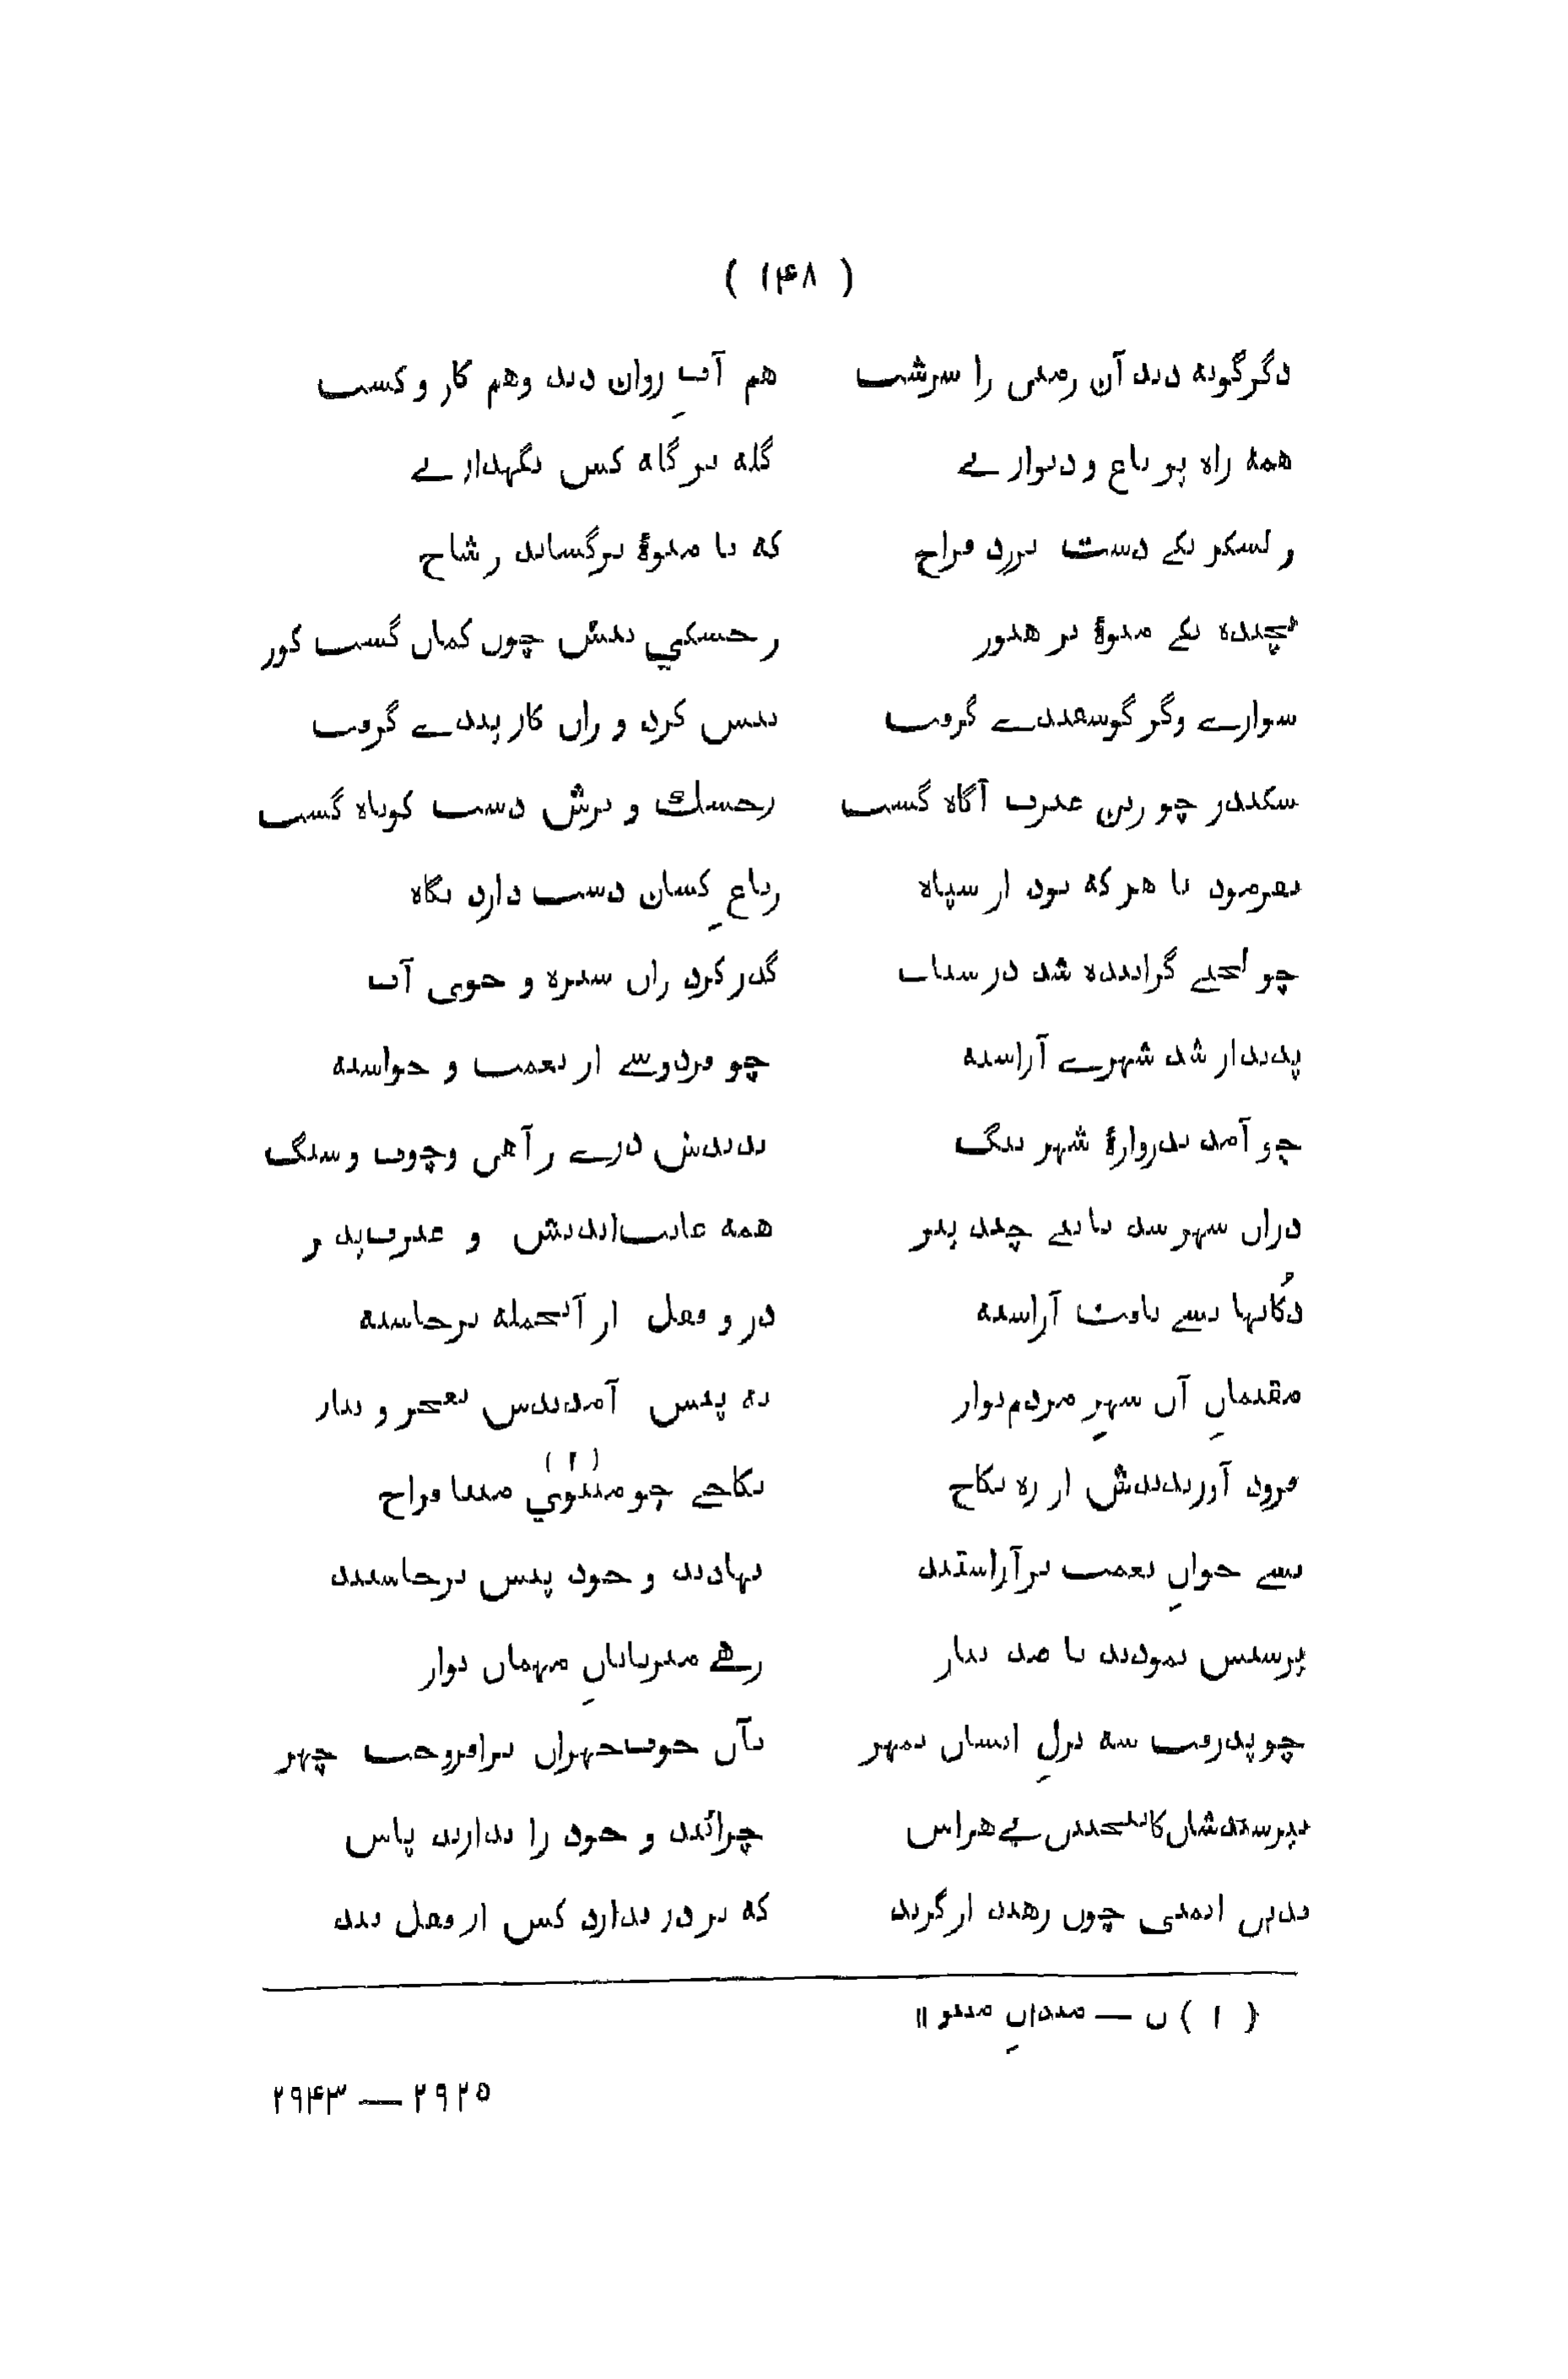 ( ۱۴۸ )
دگرگونه دید آن زمین را سرشت هم آبِ روان دید وهم کار و کشت
همه راه پر باغ و دیوار نے گله بر گله کس نگهدار نے
ز لشکر یکے دست برزد فراخ که تا میوهٔ برگشاید ز شاخ
نچیده یکے میوهٔ تر هنوز ز خشکي تنش چون کمان گشت کوز
سوارے دگر گوسفندے گرفت تبش کرد و زان کار پندے گرفت
سکندر چو زین عبرت آگاه گشت زخشك و ترش دست کوتاه گشت
بفرمود تا هر که بود از سپاه زباغِ کسان دست دارد نگاه
چو لختے گراینده شد در شتاب گذر کرد زان سبزه و جوی آب
پدیدار شد شهرے آراسته چو فردوسے از نعمت و خواسته
چو آمد بدروازهٔ شهر تنگ ندیدش درے ز آهن وچوب و سنگ
دران شهر شد با تنے چند پیر همه غایت‌اندیش و عبرت‌پذیر
دُکانها بسے یافت آراسته در و قفل از آنجمله برخاسته
مقیمانِ آن شهرِ مردم‌نواز به پیش آمدندش بعجز و نیاز
فرود آوریدندش از ره بکاخ بکاخے چو مینوي مینا فراخ (۱)
بسے خوانِ نعمت برآراستند نهادند و خود پیش برخاستند
پرستش نمودند با صد نیاز زهے میزبانانِ مهمان نواز
چو پذرفت شه نزلِ ایشان بمهر بآن خوب‌چهران برافروخت چهر
بپرسیدشان کاینچنین بےهراس چرائید و خود را ندارید پاس
بدین ایمنی چون زهید از گزند که بر در ندارد کس از قفل بند
( ۱ ) ن — میدانِ مینو ॥
۲۹۲۵ — ۲۹۴۳